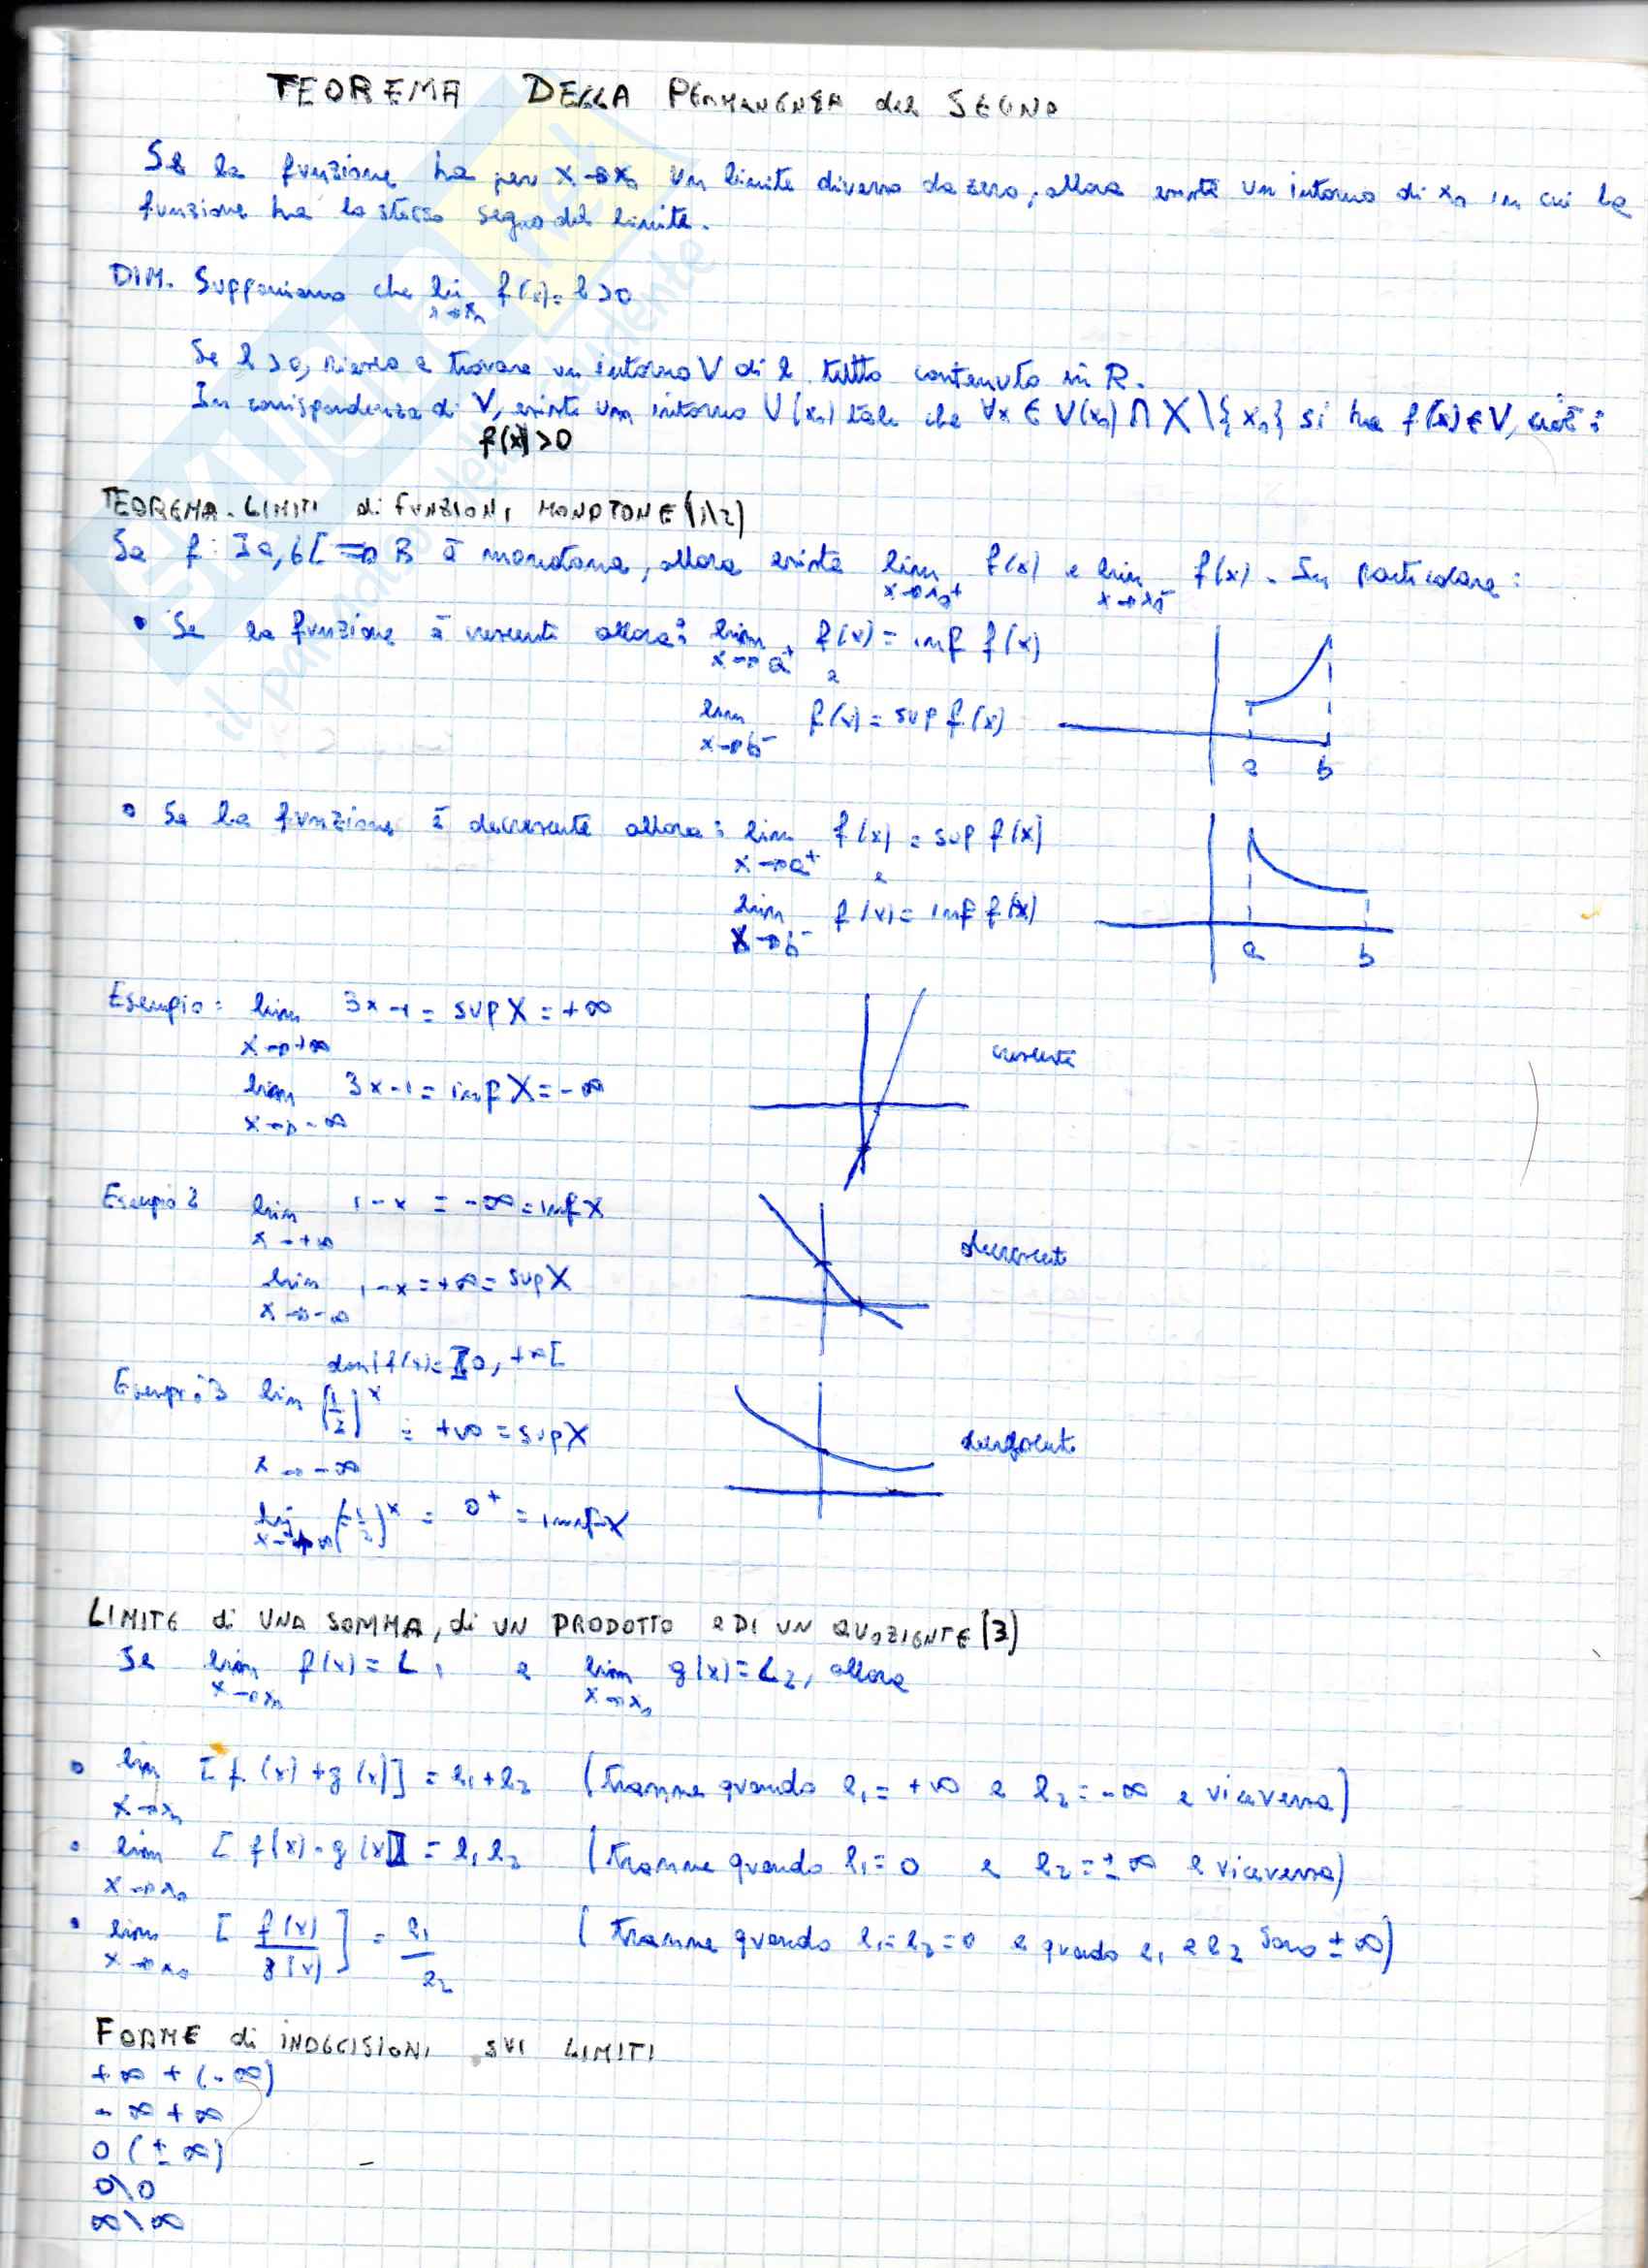 TEOREMA DELLA PERMANENZA del SEGNO
Se la funzione ha per x→x₀ un limite diverso da zero, allora esiste un intorno di x₀ in cui la
funzione ha lo stesso segno del limite.
DIM. Supponiamo che lim f(x)= l>0
x→x₀
Se l>0, riesco a trovare un intorno V di l tutto contenuto in R.
In corrispondenza di V, esiste un intorno U(x₀) tale che ∀x ∈ U(x₀) ∩ X \ {x₀} si ha f(x) ∈ V, cioè:
f(x)>0
TEOREMA. LIMITI di FUNZIONI MONOTONE (1\2)
Se f: ]a,b[ → R è monotona, allora esiste lim f(x) e lim f(x). In particolare:
x→x₀⁺ x→x₀⁻
• Se la funzione è crescente allora: lim f(x) = inf f(x)
x→a⁺ e
lim f(x) = sup f(x)
x→b⁻
a b
• Se la funzione è decrescente allora: lim f(x) = sup f(x)
x→a⁺ e
lim f(x) = inf f(x)
x→b⁻
a b
Esempio: lim 3x-1 = sup X = +∞
x→+∞
crescente
lim 3x-1 = inf X = -∞
x→-∞
Esempio 2 lim 1-x = -∞ = inf X
x→+∞
decrescente
lim 1-x = +∞ = sup X
x→-∞
dom f(x)= ]0, +∞[
Esempio 3 lim (1/2)ˣ = +∞ = sup X
decrescente
x→-∞
lim (1/2)ˣ = 0⁺ = inf X
x→+∞
LIMITE di UNA SOMMA, di UN PRODOTTO e DI UN QUOZIENTE (3)
Se lim f(x) = L₁ e lim g(x) = L₂, allora
x→x₀ x→x₀
• lim [f(x)+g(x)] = l₁+l₂ (tranne quando l₁ = +∞ e l₂ = -∞ e viceversa)
x→x₀
• lim [f(x)·g(x)] = l₁l₂ (tranne quando l₁ = 0 e l₂ = ±∞ e viceversa)
x→x₀
• lim [f(x)/g(x)] = l₁/l₂ (tranne quando l₁=l₂=0 e quando l₁ e l₂ sono ±∞)
x→x₀
FORME di INDECISIONI SUI LIMITI
+∞ + (-∞)
-∞ + ∞
0 (±∞)
0\0
∞\∞